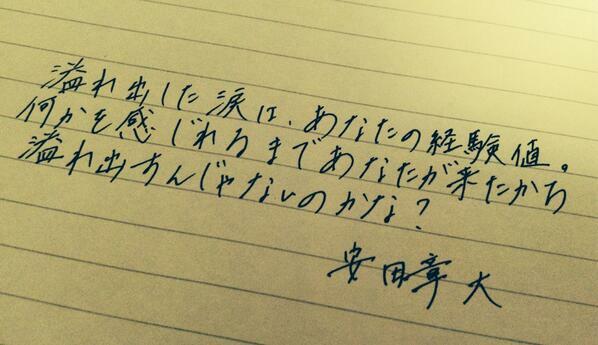 溢れ出した涙は、あなたの経験値。
何かを感じれるまであなたが来たから
溢れ出すんじゃないのかな?
安田章大